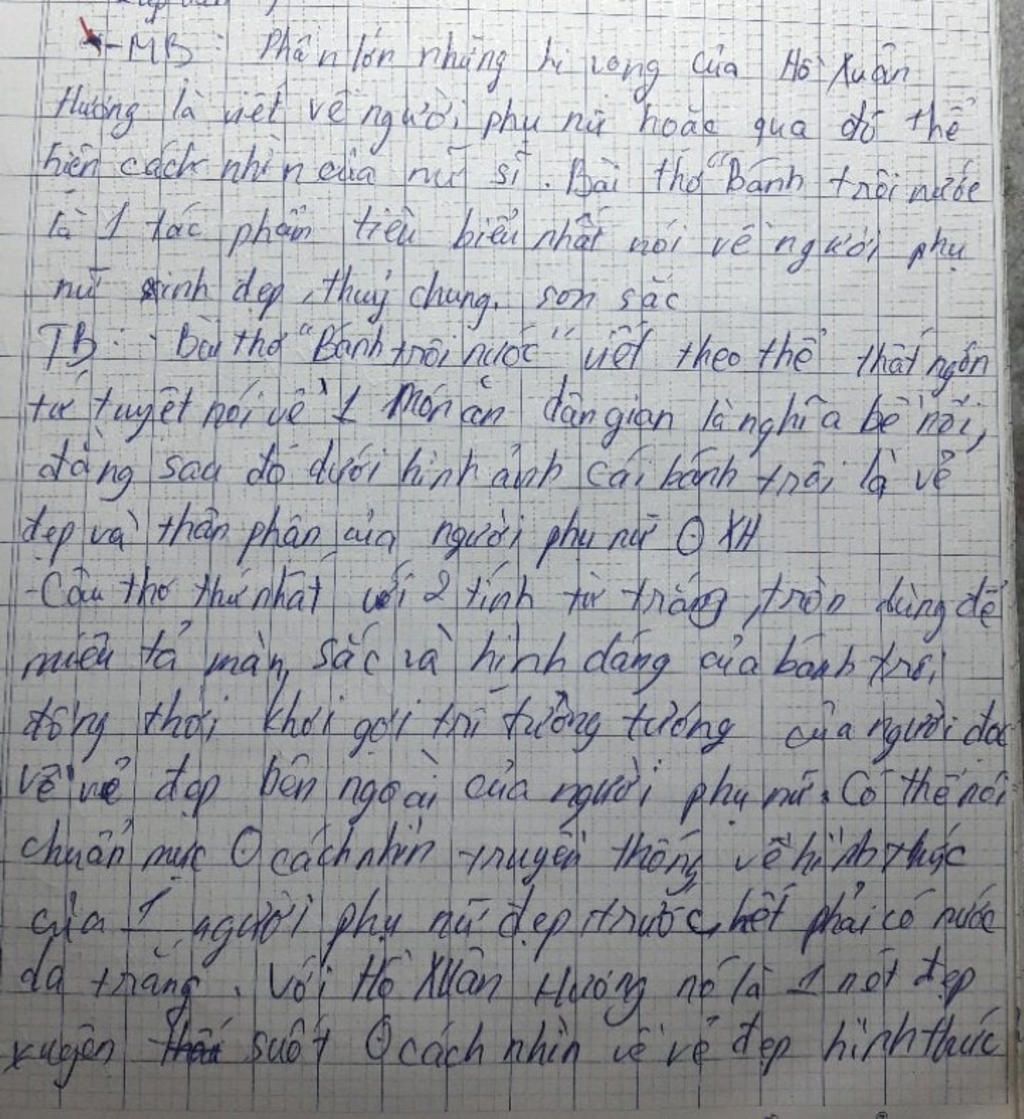 - MB: Phần lớn những hi vọng của Hồ Xuân
Hương là viết về người phụ nữ hoặc qua đó thể
hiện cách nhìn của nữ sĩ. Bài thơ "Bánh trôi nước
là 1 tác phẩm tiêu biểu nhất nói về người phụ
nữ xinh đẹp, thuỷ chung, son sắc
TB: - Bài thơ "Bánh trôi nước" viết theo thể thất ngôn
tứ tuyệt nói về 1 món ăn dân gian là nghĩa bề nổi,
đằng sau đó dưới hình ảnh cái bánh trôi là vẻ
đẹp và thân phận của người phụ nữ ⊙ XH
- Câu thơ thứ nhất với 2 tính từ trắng, tròn dùng để
miêu tả màn sắc và hình dáng của bánh trôi
đồng thời khơi gợi trí tưởng tượng của người đọc
về vẻ đẹp bên ngoài của người phụ nữ. Có thể nói
chuẩn mực ⊙ cách nhìn truyền thống về hình thức
của 1 người phụ nữ đẹp trước hết phải có nước
da trắng. Với Hồ Xuân Hương nó là 1 nét đẹp
xuyên suốt ⊙ cách nhìn về vẻ đẹp hình thức